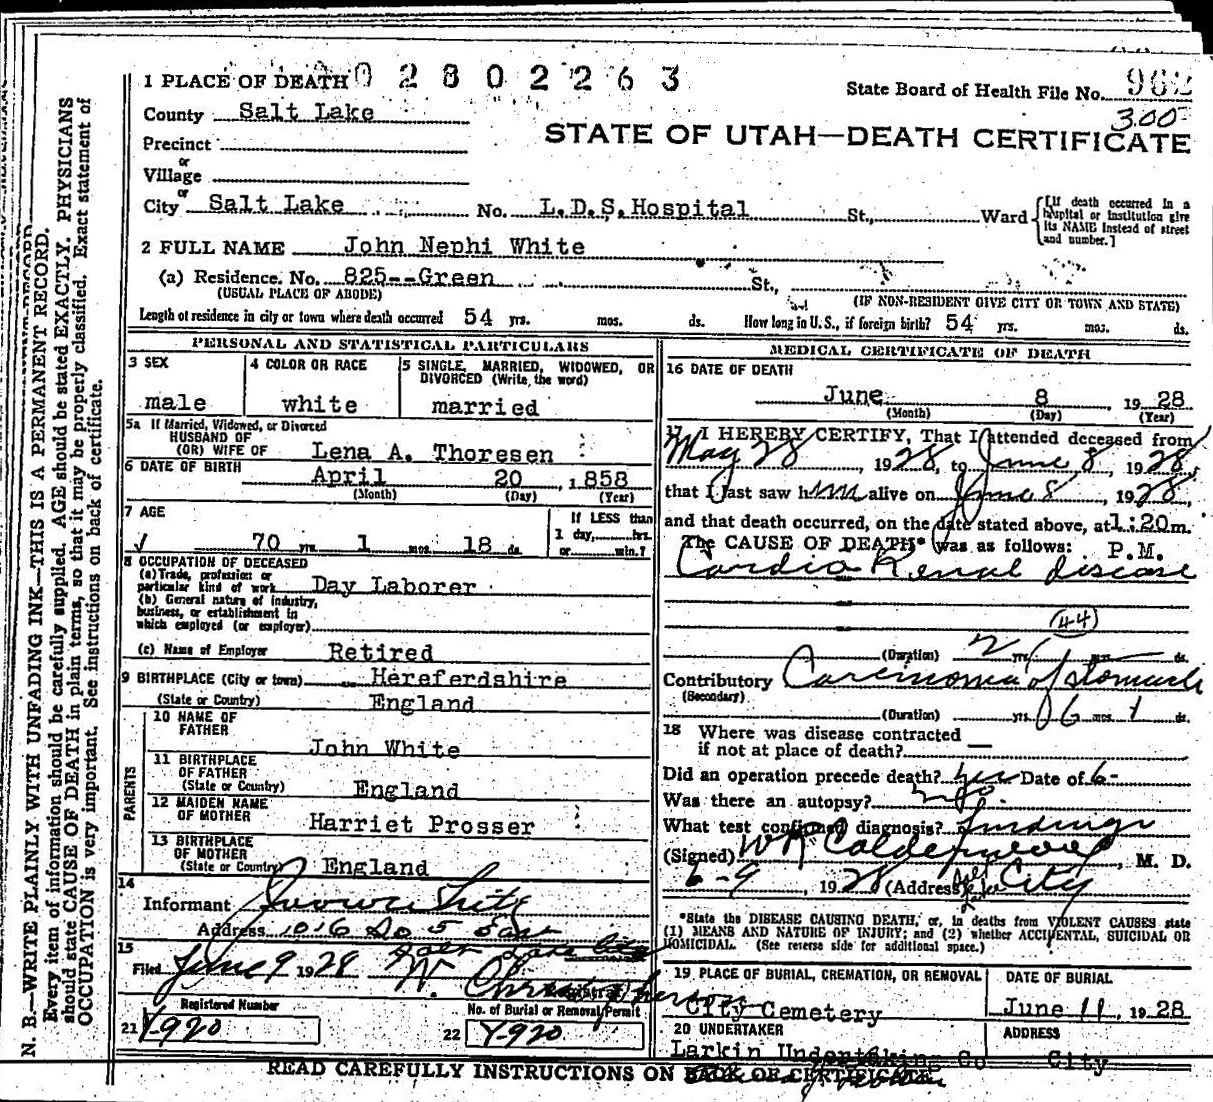 1 PLACE OF DEATH 02802263
State Board of Health File No. 962
County Salt Lake
300
STATE OF UTAH—DEATH CERTIFICATE
Precinct
or
Village
or
City Salt Lake No. L.D.S. Hospital St., Ward [If death occurred in a hospital or institution give its NAME instead of street and number.]
2 FULL NAME John Nephi White
(a) Residence. No. 825--Green St.,
(USUAL PLACE OF ABODE) (IF NON-RESIDENT GIVE CITY OR TOWN AND STATE)
Length of residence in city or town where death occurred 54 yrs. mos. ds. How long in U. S., if foreign birth? 54 yrs. mos. ds.
PERSONAL AND STATISTICAL PARTICULARS
3 SEX
male
4 COLOR OR RACE
white
5 SINGLE, MARRIED, WIDOWED, OR DIVORCED (Write the word)
married
5a If Married, Widowed, or Divorced
HUSBAND OF
(OR) WIFE OF Lena A. Thoresen
6 DATE OF BIRTH April 20, 1858
(Month) (Day) (Year)
7 AGE
70 yrs. 1 mos. 18 ds.
If LESS than
1 day, hrs.
or min.?
8 OCCUPATION OF DECEASED
(a) Trade, profession or
particular kind of work Day Laborer
(b) General nature of industry,
business, or establishment in
which employed (or employer)
(c) Name of Employer Retired
9 BIRTHPLACE (City or town) Herefordshire
(State or Country) England
PARENTS
10 NAME OF
FATHER
John White
11 BIRTHPLACE
OF FATHER
(State or Country) England
12 MAIDEN NAME
OF MOTHER Harriet Prosser
13 BIRTHPLACE
OF MOTHER
(State or Country) England
14
Informant
Address 1016 So 5 East
Salt Lake City
15
Filed June 9 1928 W. Christopherson
Registrar
Registered Number
21 Y-920
No. of Burial or Removal Permit
22 Y-920
MEDICAL CERTIFICATE OF DEATH
16 DATE OF DEATH
June 8, 1928
(Month) (Day) (Year)
17 I HEREBY CERTIFY, That I attended deceased from
May 28, 1928, to June 8, 1928,
that I last saw him alive on June 8, 1928,
and that death occurred, on the date stated above, at 1:20 m.
The CAUSE OF DEATH* was as follows: P.M.
Cardio Renal disease
(44)
(Duration) 2 yrs. mos. ds.
Contributory Carcinoma of stomach
(Secondary)
(Duration) yrs. 6 mos. 1 ds.
18 Where was disease contracted
if not at place of death? —
Did an operation precede death? yes Date of 6-
Was there an autopsy? no
What test confirmed diagnosis? findings
(Signed) W R Calderwood, M. D.
6-9, 1928 (Address) Salt Lake City
*State the DISEASE CAUSING DEATH, or, in deaths from VIOLENT CAUSES state
(1) MEANS AND NATURE OF INJURY; and (2) whether ACCIDENTAL, SUICIDAL OR
HOMICIDAL. (See reverse side for additional space.)
19 PLACE OF BURIAL, CREMATION, OR REMOVAL
City Cemetery
DATE OF BURIAL
June 11, 1928
20 UNDERTAKER
Larkin Undertaking Co
ADDRESS
City
READ CAREFULLY INSTRUCTIONS ON BACK OF CERTIFICATE
N. B.—WRITE PLAINLY WITH UNFADING INK—THIS IS A PERMANENT RECORD.
Every item of information should be carefully supplied. AGE should be stated EXACTLY. PHYSICIANS
should state CAUSE OF DEATH in plain terms, so that it may be properly classified. Exact statement of
OCCUPATION is very important. See instructions on back of certificate.